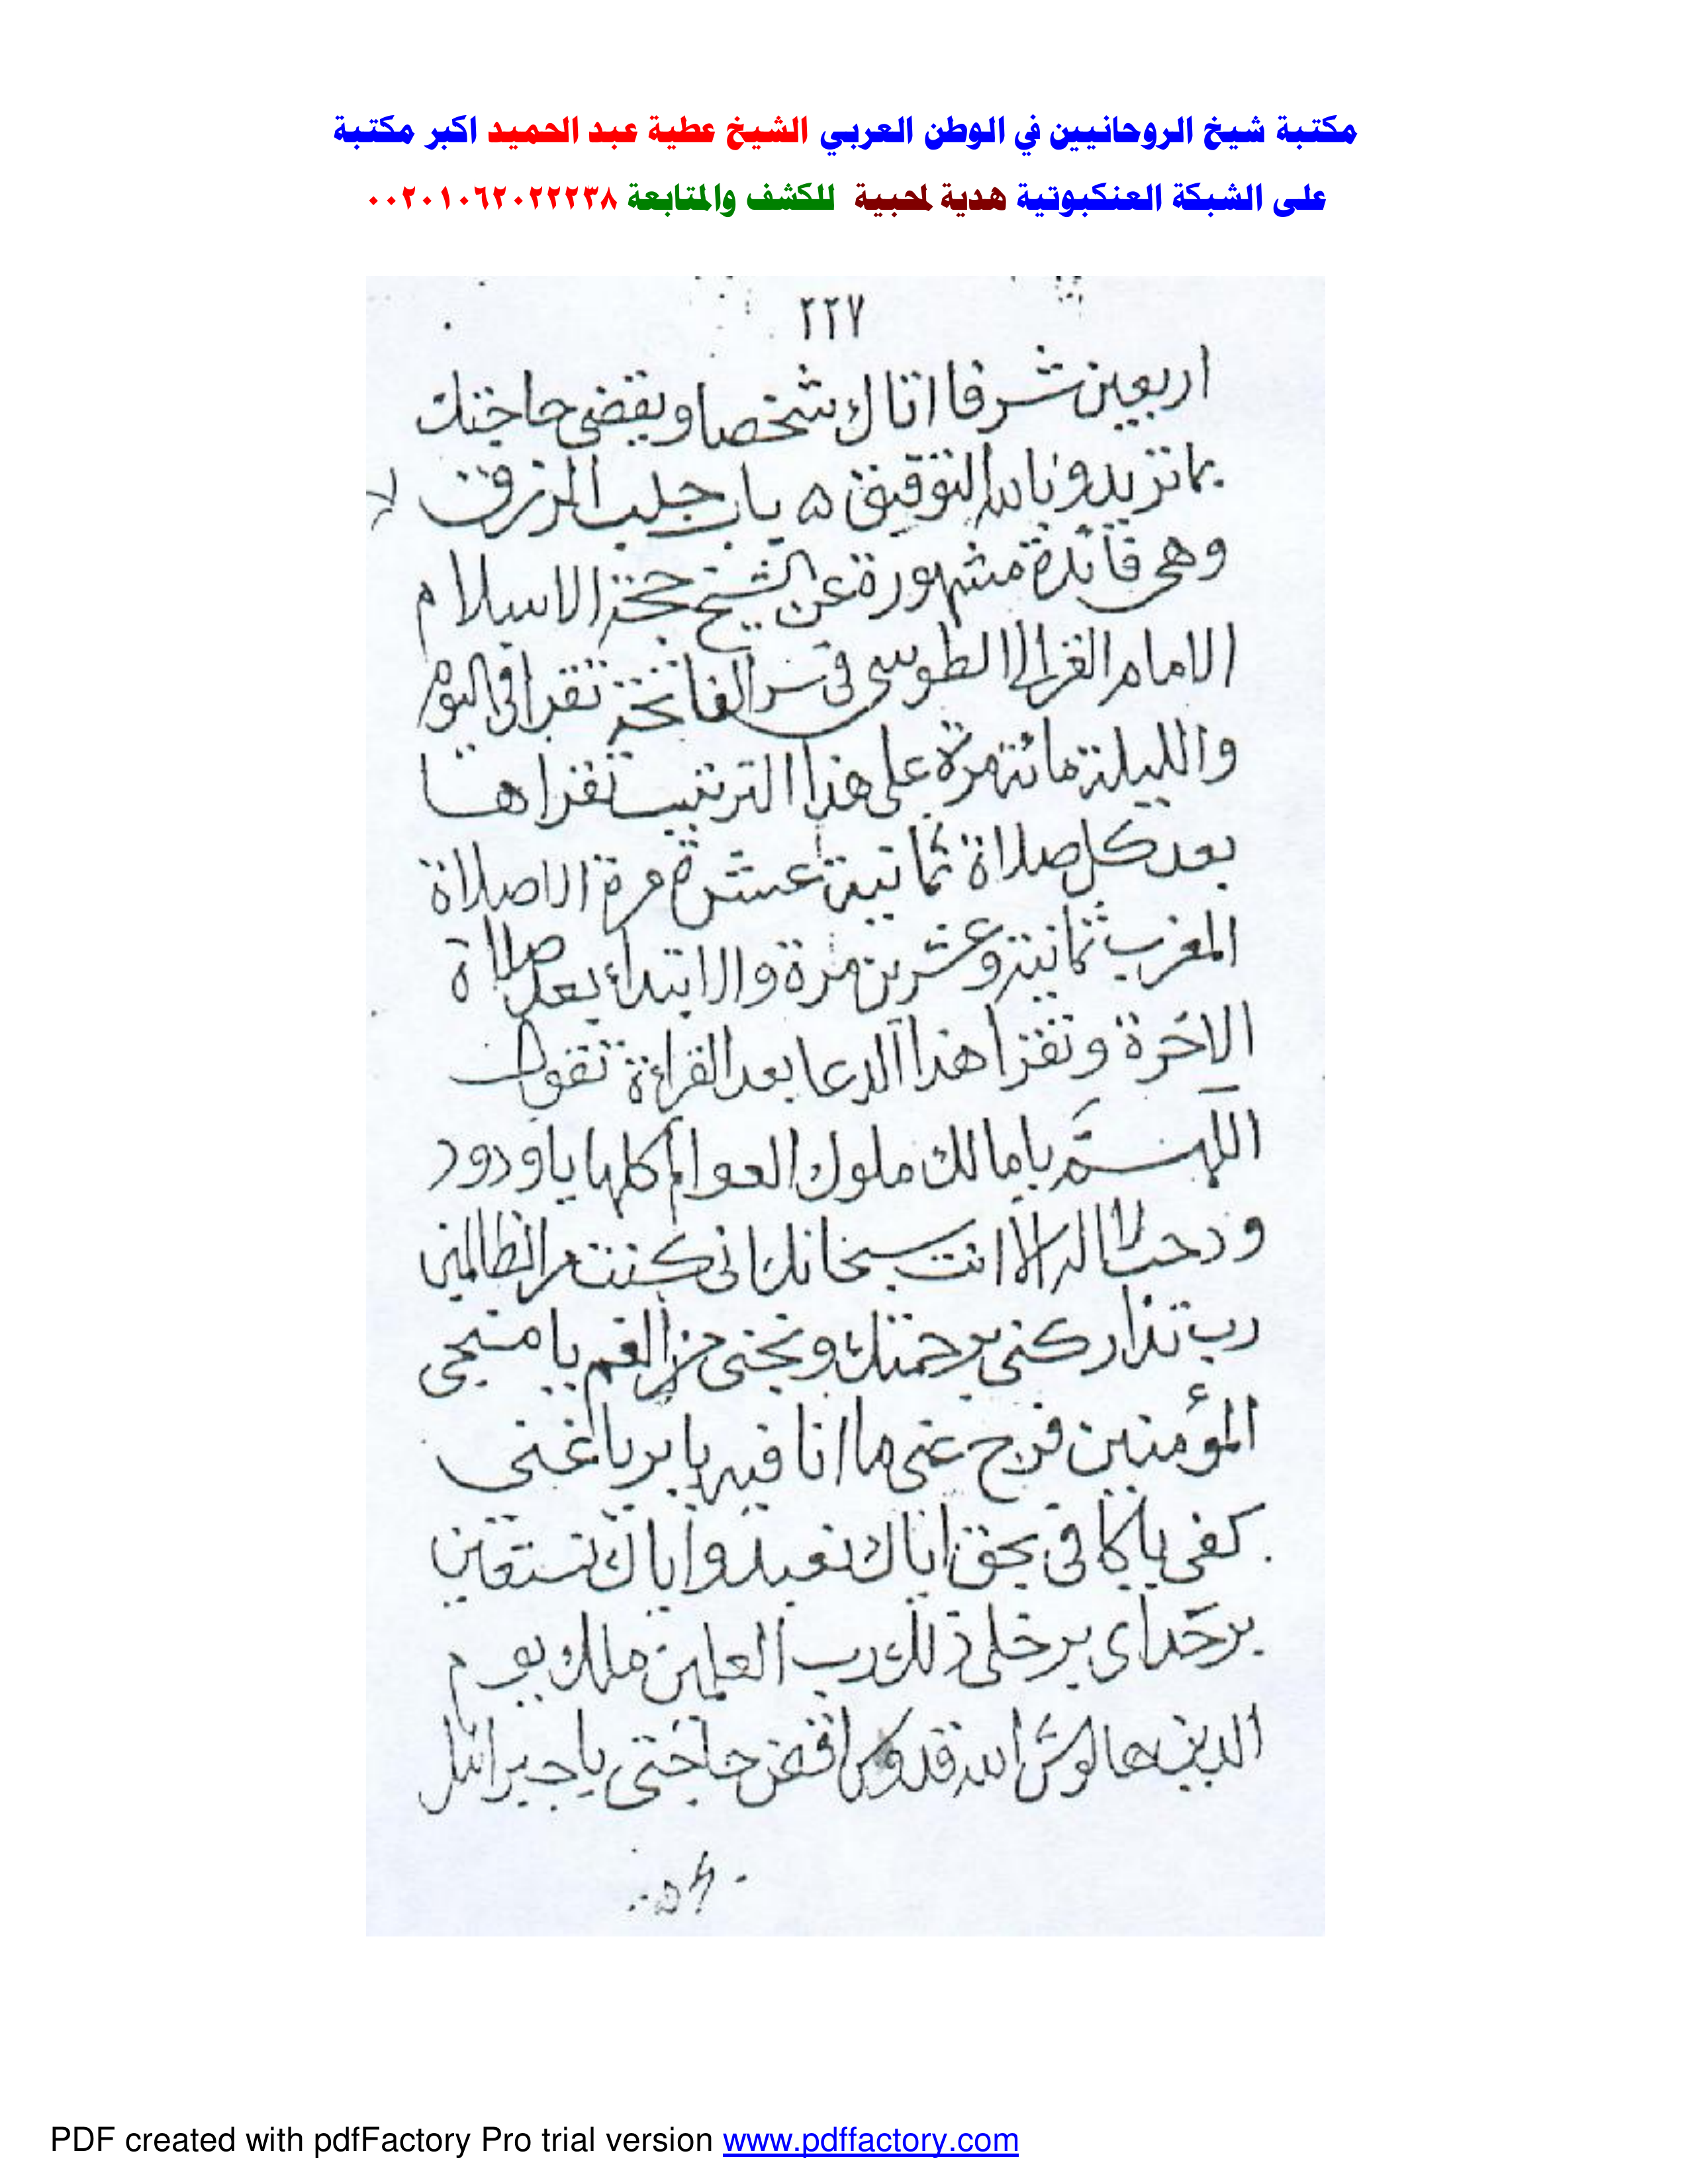 مكتبة شيخ الروحانيين في الوطن العربي الشيخ عطية عبد الحميد اكبر مكتبة
على الشبكة العنكبوتية هدية لمحبية للكشف والمتابعة ٠٠٢٠١٠٦٢٠٢٢٢٣٨
٢٢٧
اربعين شرفا اتاك شخصا ويقضى حاجتك
بما تريد وبالله التوفيق ه باب جلب الرزق
وهى فائدة مشهورة عن الشيخ حجة الاسلام
الامام الغزالى الطوسى فى سر الفاتحة تقرا فى اليوم
والليلة مائة مرة على هذا الترتيب تقراها
بعد كل صلاة ثمانية عشرة مرة الا صلاة
المغرب ثمانية وعشرين مرة والابتداء بعد صلاة
الاخرة وتقرا هذا الدعا بعد القراءة تقول
اللهم يا مالك ملوك العوالم كلها يا ودود
ودحب لا اله الا انت سبحانك انى كنت من الظالمين
رب تداركنى برحمتك ونجنى من الغم يا منجى
المؤمنين فرج عنى ما انا فيه يا بر يا غنى
كفى يا كافى بحق اياك نعبد واياك نستعين
ذلك رب العلمين ملك يوم
الدين الله قدوس اقض حاجتى يا جبرائل
PDF created with pdfFactory Pro trial version www.pdffactory.com